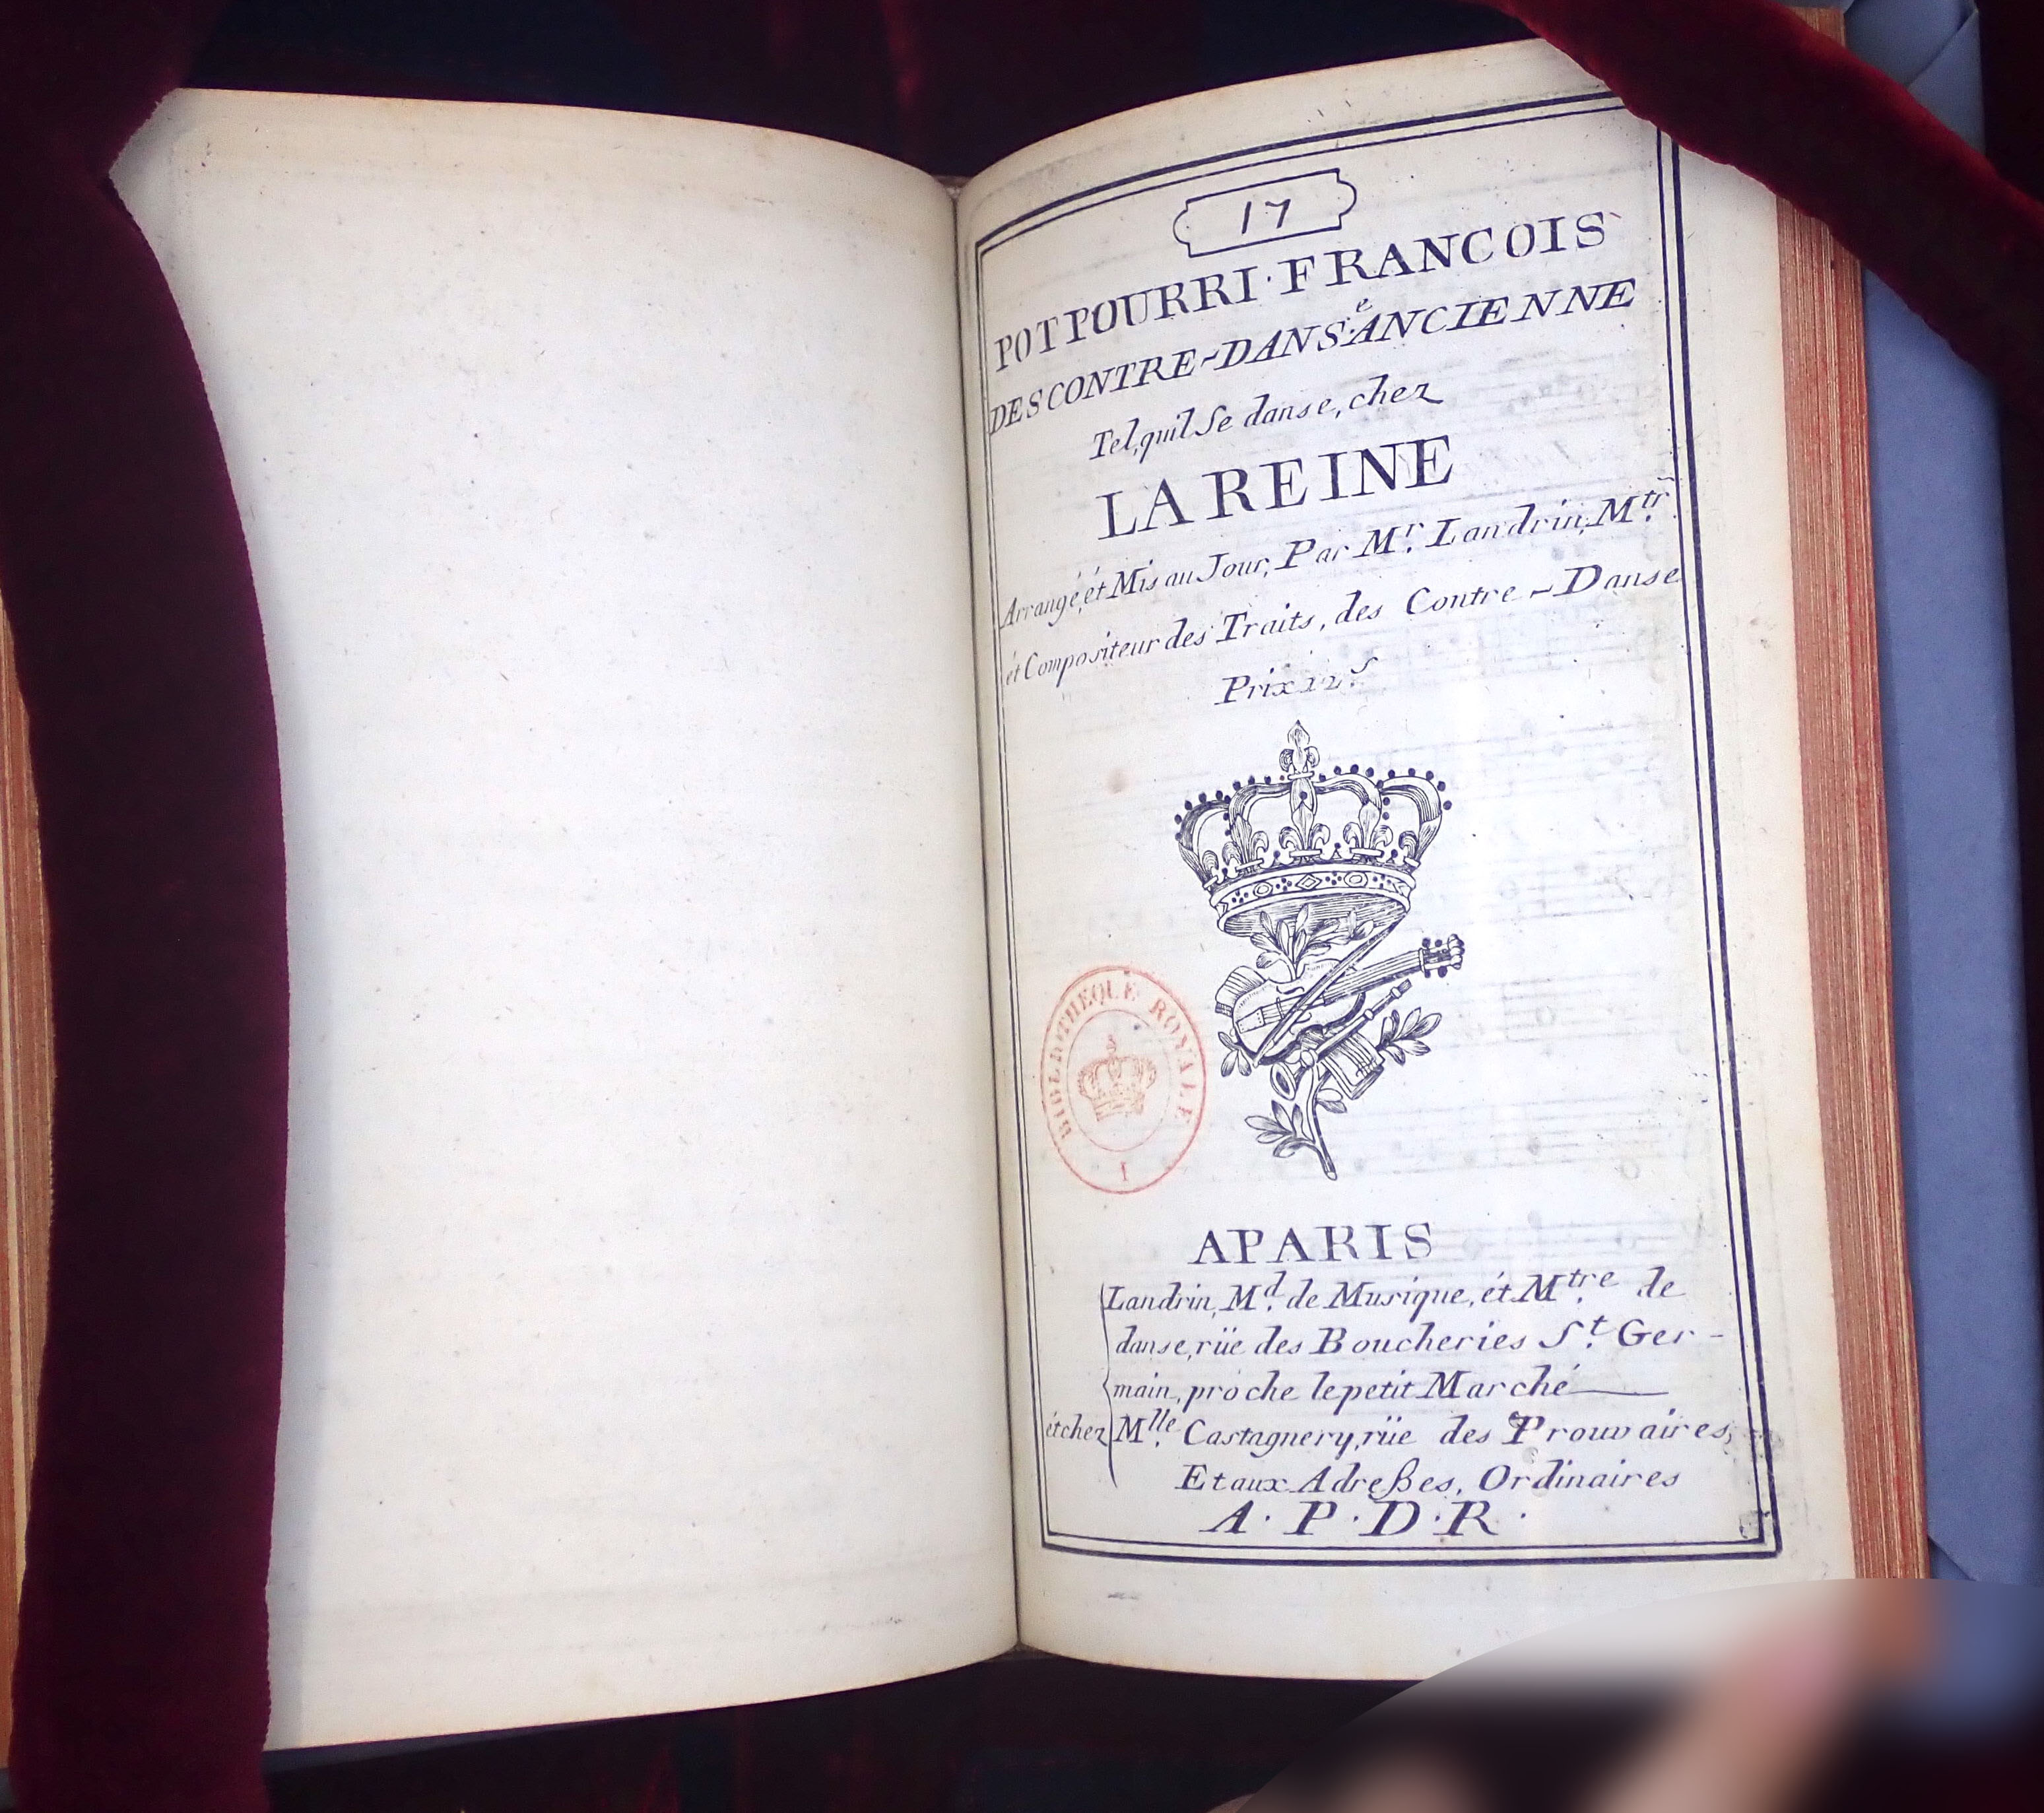 17
POTPOURRI·FRANCOIS
DES CONTRE-DANSe ANCIENNE
Tel, quil se danse, chez
LA REINE
Arrangé, ét Mis au Jour, Par Mr. Landrin, Mtr.
ét Compositeur des Traits, des Contre-Danse
Prix 12s
BIBLIOTHEQUE ROYALE
I
A PARIS
Landrin, Md. de Musique, ét Mtre. de
danse, rüe des Boucheries St. Ger-
main, proche le petit Marché
ét chez Mlle. Castagnery, rüe des Prouvaires,
Et aux Adreßes, Ordinaires
A·P·D·R·